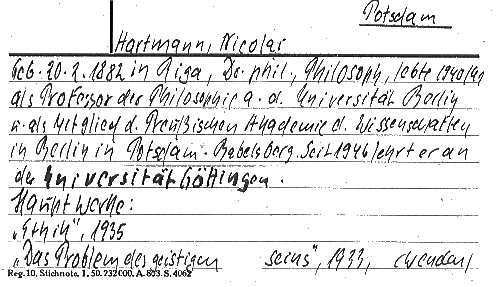 Potsdam
Hartmann, Nicolai
Geb. 20.2.1882 in Riga, Dr. phil., Philosoph, lebte 1940/41
als Professor der Philosophie a. d. Universität Berlin
u. als Mitglied d. Preußischen Akademie d. Wissenschaften
in Berlin in Potsdam-Babelsberg. Seit 1946 lehrt er an
der Universität Göttingen.
Hauptwerke:
„Ethik“, 1935
„Das Problem des geistigen Seins“, 1933, (wenden)
Reg. 10. Stichnote. 1. 50. 232000. A. 853. S. 4062